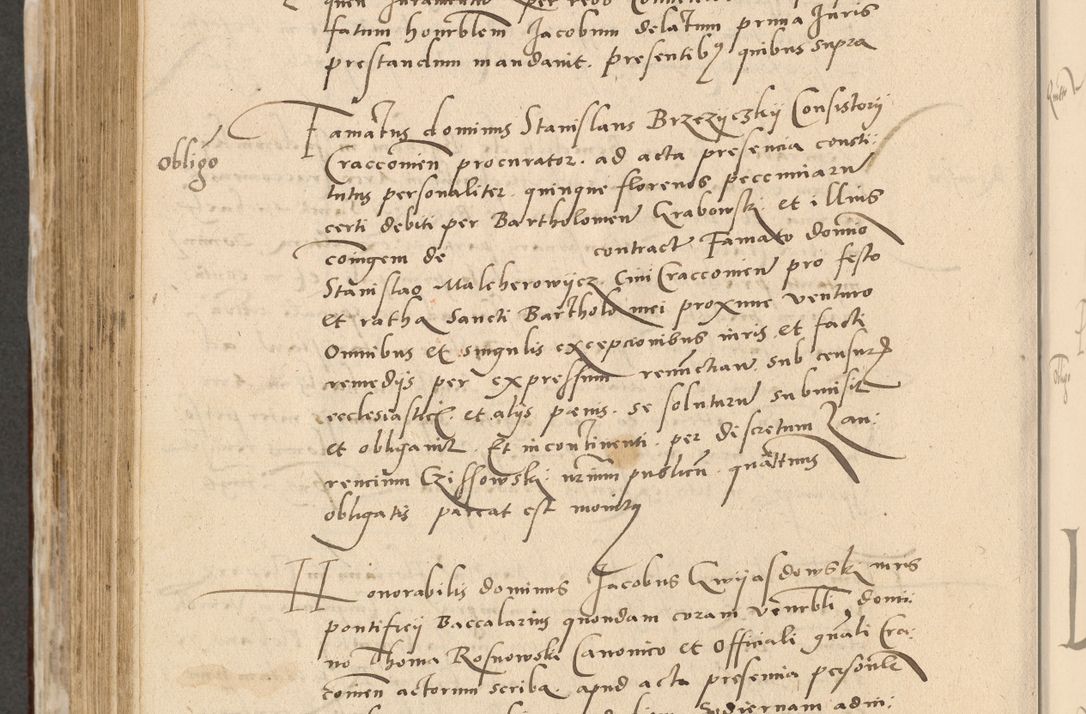 fatum honrblem Jacobum delatum prima Juris
prestandum mandavit. presentibus quibus supra
Obligo
Famatus dominus Stanislaus Brzezyczkij Consistorij
Craccovien procurator. ad acta presencia consti:
tutus personaliter. quinque florenos pecuniarum
certi debiti per Bartholomeum Grabowski. et illius
coingem de contract Famato domino
Stanislao Malcherowijcz. Civi Craccovien pro festo
et ratha Sancti Bartholomei proxime venturo
Omnibus et singulis excepcionibus iuris et facti
remedijs per expressum renunctian. sub censuris
ecclesiasticis. et alijs penis. se soluturum submisit
et obligavit. Et incontinenti. per discretum Lau:
rencium Czissowski. nrium publicum. quatenus
obligatis pareat est monitus
Honorabilis dominus Jacobus Gwijasdowski iuris
pontificij Baccalarius quondam coram venrbli domi:
no Thoma Rosnowski Canonico et Officiali gnali Cra:
covien actorum scriba. apud acta presencia personalr